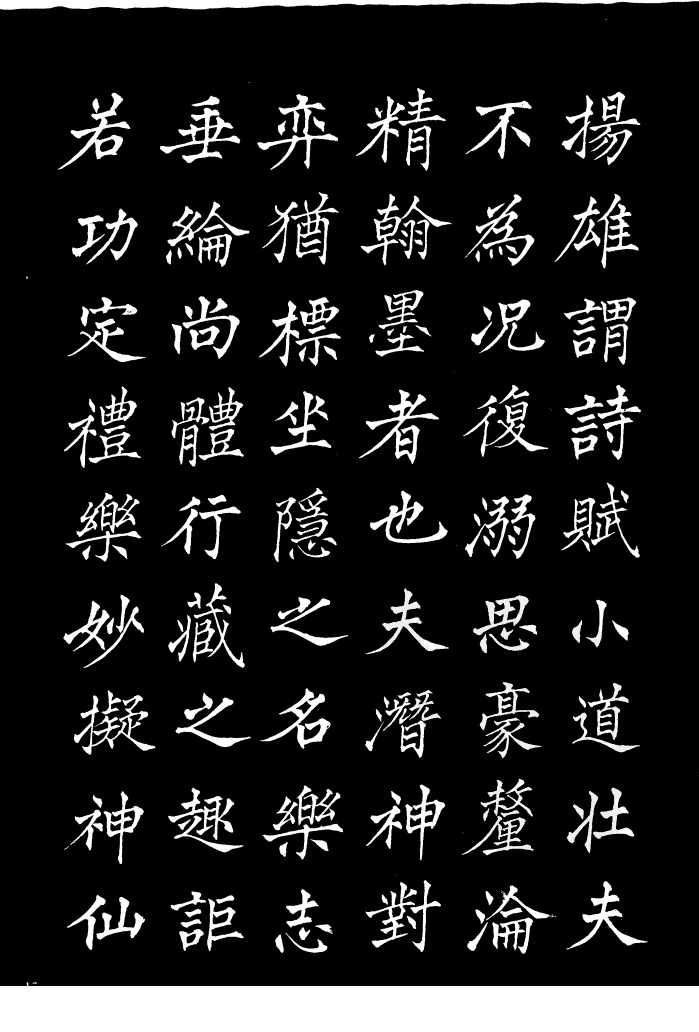 揚雄謂詩賦小道壯夫
不為況復溺思豪釐淪
精翰墨者也夫潛神對
弈猶標坐隱之名樂志
垂綸尚體行藏之趣詎
若功定禮樂妙擬神仙